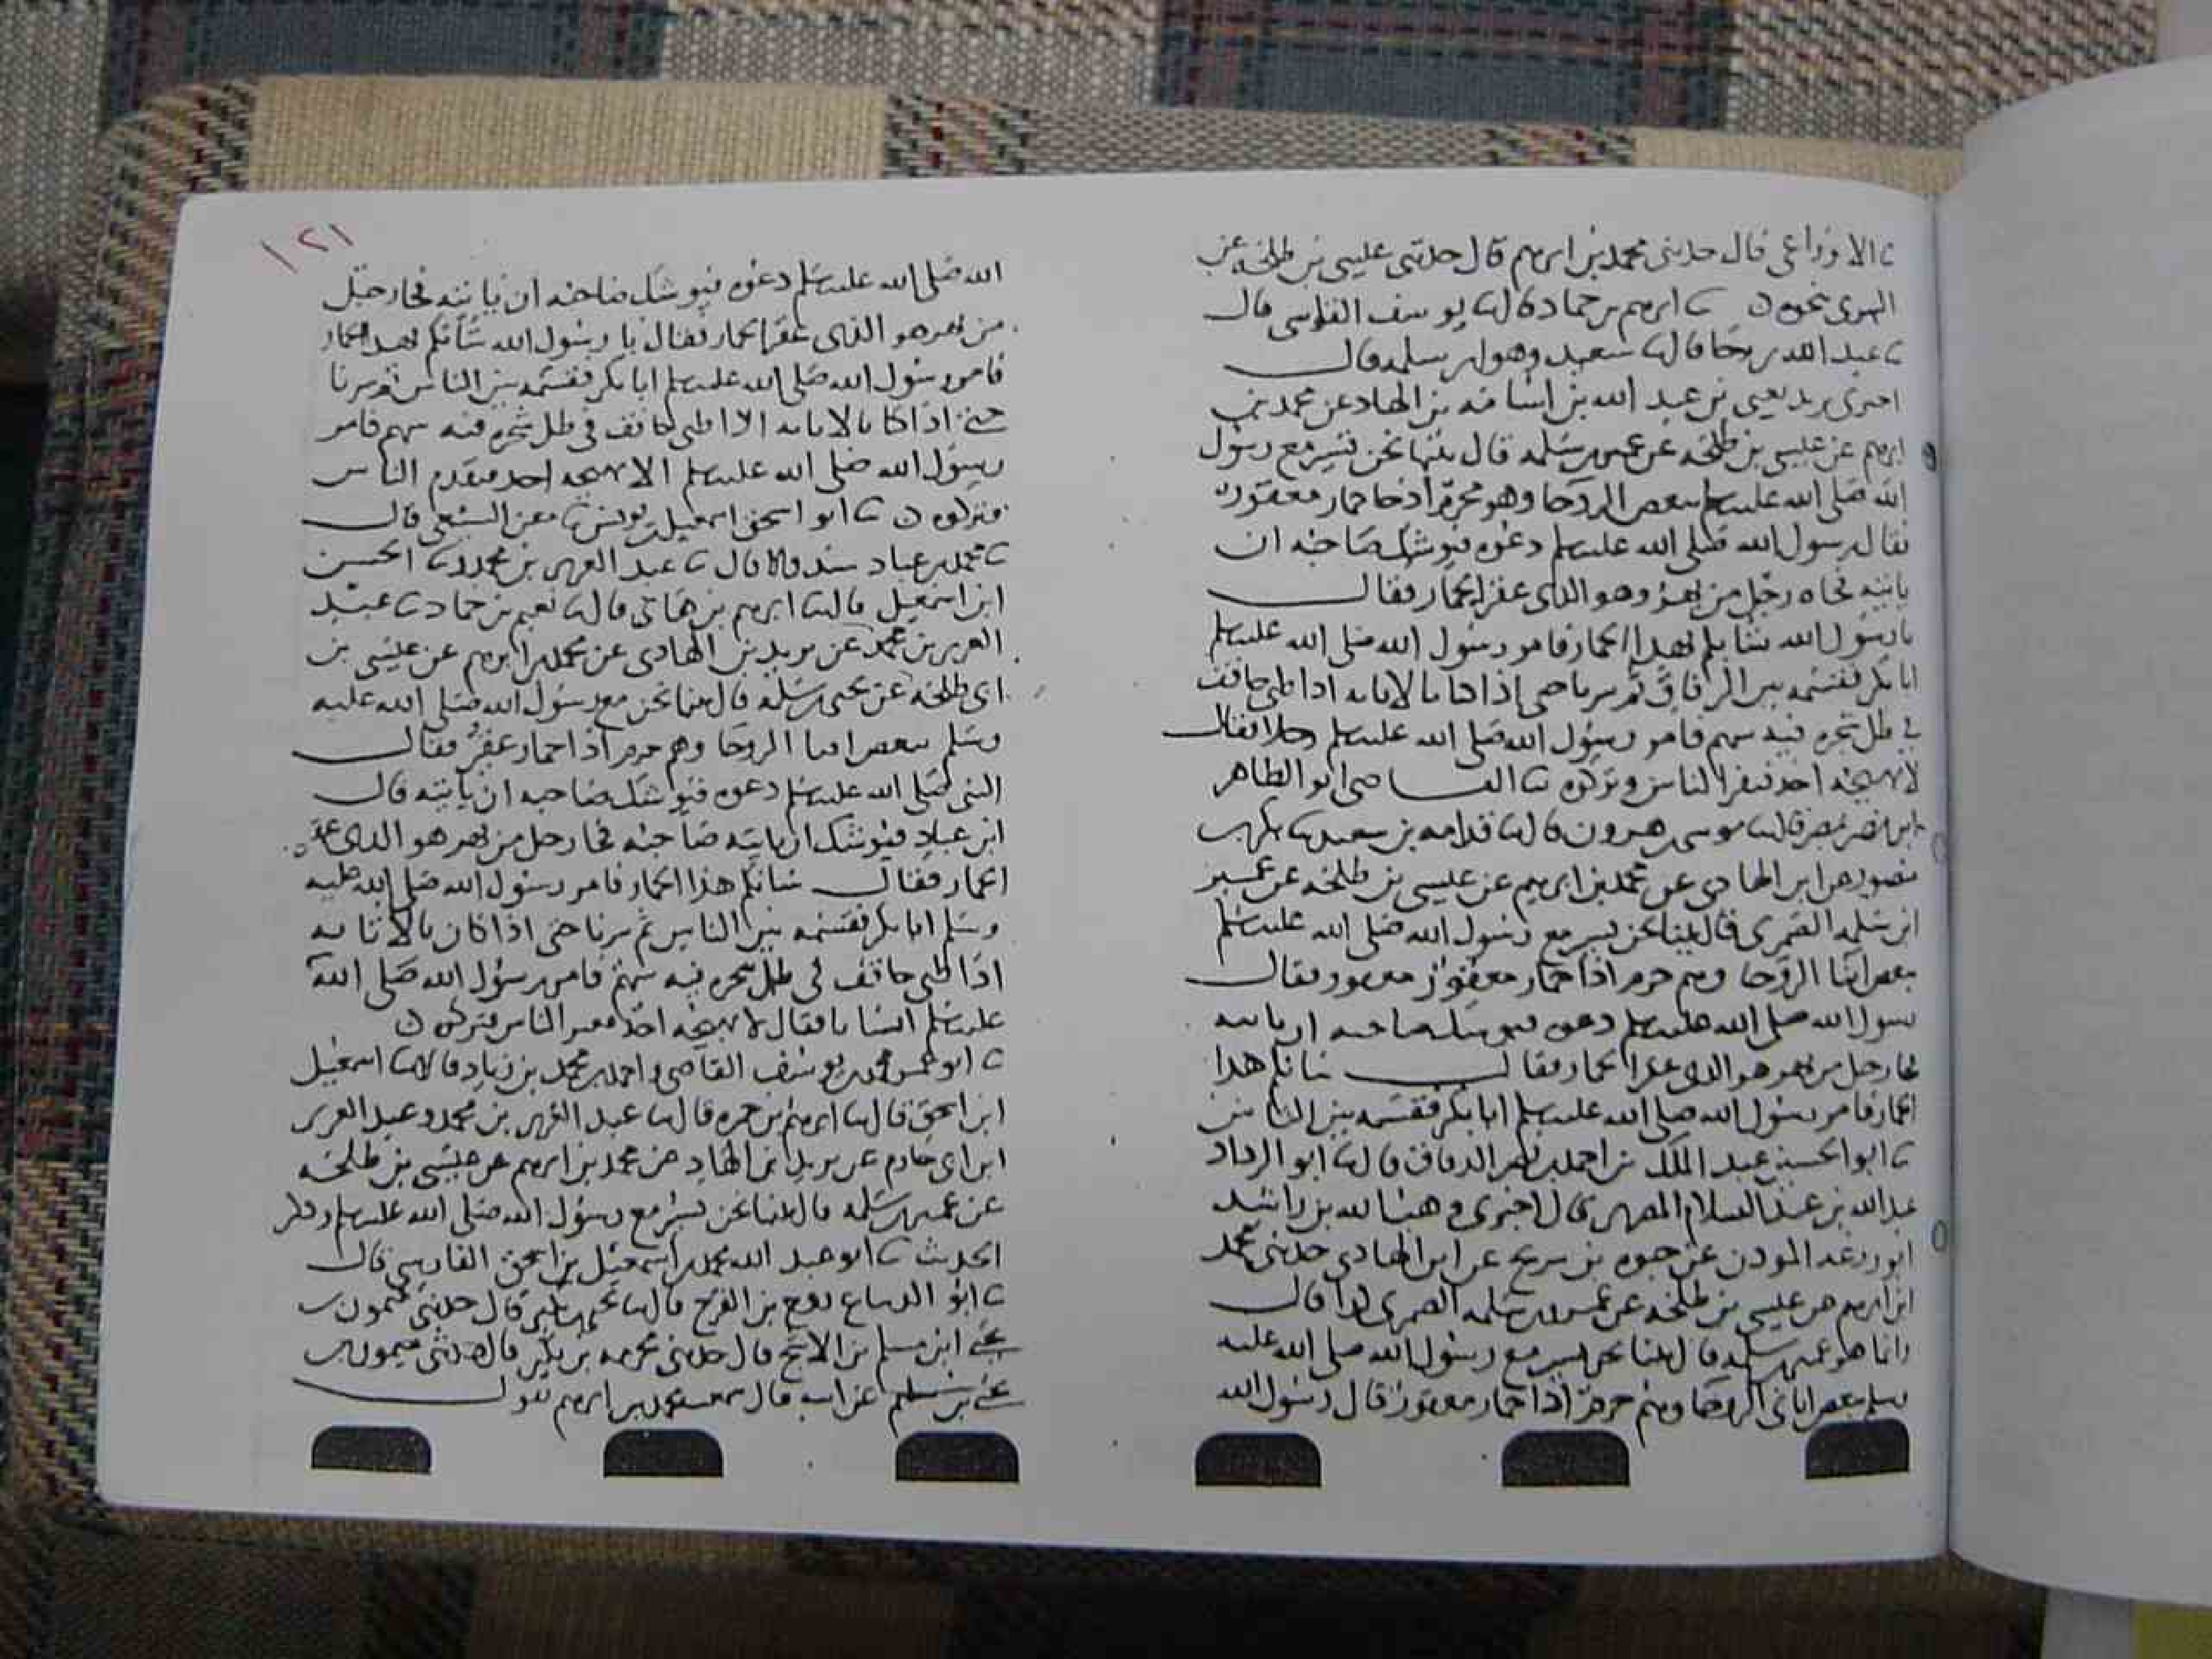 الاوزاعي قال حدثني محمد بن ابرهيم قال حدثني عيسى بن طلحة عن
ابرهيم بن حماد قال يوسف قال
عبد الله بن رجا قال سعيد وهو ابن سلمه قال
يزيد يعني بن عبد الله بن اسامه بن الهاد عن محمد بن
ابرهيم عن عيسى بن طلحه عن عمير بن سلمه قال بينما نحن نسير مع رسول
الله صلى الله عليه وسلم ببعض الروحا وهو محرم اذ حمار معقور
فقال رسول الله صلى الله عليه وسلم دعوه فيوشك صاحبه ان
ياتيه فجاه رجل من بهز وهو الذي عقر الحمار فقال
يا رسول الله شانكم بهذا الحمار فامر رسول الله صلى الله عليه وسلم
ابا بكر فقسمه بين الرفاق ثم سرنا حتى اذا كنا بالاثايه اذا ظبي حاقف
في ظل شجره فيه سهم فامر رسول الله صلى الله عليه وسلم رجلا فقال
لا يهيجه احد فنفر الناس وتركوه القاضي ابو الطاهر
ابن نصر قال موسى بن هرون قال قدامه بن سعيد بكر بن
عن ابن الهادي عن محمد بن ابرهيم عن عيسى بن طلحه عن عمير
ابن سلمه الضمري قال بينا نحن نسير مع رسول الله صلى الله عليه وسلم
ببعض اثنا الروحا وهم حرم اذا حمار معقور فقال
رسول الله صلى الله عليه وسلم دعوه فيوشك صاحبه ان ياتيه
فجا رجل من بهز هو الذي عقر الحمار فقال شانكم هذا
الحمار فامر رسول الله صلى الله عليه وسلم ابا بكر فقسمه بين الناس
ابو الحسين عبد الملك بن احمد بن نصر الدقاق قال ابو الرداد
عبد الله بن عبد السلام المصري قال اخبرني وهب الله بن راشد
ابو زرعه الموذن عن حيوه بن شريح عن ابن الهادي حدثني محمد
ابن ابرهيم عن عيسى بن طلحه عن سلمه الضمري كذا قال
وانما هو عمير بن سلمه قال بينا نحن نسير مع رسول الله صلى الله عليه
وسلم ببعض الروحا وهم حرم اذا حمار معقور قال رسول الله
١٢١
الله صلى الله عليه وسلم دعوه فيوشك صاحبه ان ياتيه فجا رجل
من بهز هو الذي عقر الحمار فقال يا رسول الله شانكم بهذا الحمار
فامر رسول الله صلى الله عليه وسلم ابا بكر فقسمه بين الناس ثم سرنا
حتى اذا كنا بالاثايه اذا ظبي حاقف في ظل شجره فيه سهم فامر
رسول الله صلى الله عليه وسلم الا يهيجه احد فتقدم الناس
فتركوه ابو اسحق اسمعيل بن يونس قال
محمد بن عباد قال عبد العزيز بن محمد الحسين
ابن اسمعيل قال ابرهيم بن هاني قال نعيم بن حماد عبد
العزيز بن محمد عن يزيد بن الهادي عن محمد بن ابرهيم عن عيسى بن
طلحه عن سلمه قال بينما نحن مع رسول الله صلى الله عليه
وسلم ببعض اثنا الروحا وهم حرم اذا حمار عقر فقال
النبي صلى الله عليه وسلم دعوه فيوشك صاحبه ان ياتيه قال
ابن عباد فيوشك ان ياتيه صاحبه فجا رجل من بهز هو الذي عقر
الحمار فقال شانكم هذا الحمار فامر رسول الله صلى الله عليه
وسلم ابا بكر فقسمه بين الناس ثم سرنا حتى اذا كان بالاثايه
اذا ظبي حاقف في ظل شجره فيه سهم فامر رسول الله صلى الله
عليه وسلم انسانا فقال لا يهيجه احد الناس فتركوه
ابو عمر محمد بن يوسف القاضي واحمد بن محمد بن زياد قالا اسمعيل
ابن اسحق قال ابرهيم بن حمزه قال عبد العزيز بن محمد وعبد العزيز
ابن ابي حازم عن يزيد ابن الهاد عن محمد بن ابرهيم عن عيسى بن طلحه
عن عمير بن سلمه قال بينما نحن نسير مع رسول الله صلى الله عليه وسلم وذكر
الحديث ابو عبد الله محمد بن اسمعيل بن اسحق الفارسي قال
ابو روح بن الفرج قال قال حدثني ميمون بن
يحيى ابن مسلم بن الاشج قال حدثني مخرمه بن بكير قال حدثني ميمون بن
يحيى بن مسلم عن ابيه قال سمعت محمد بن ابرهيم يقول